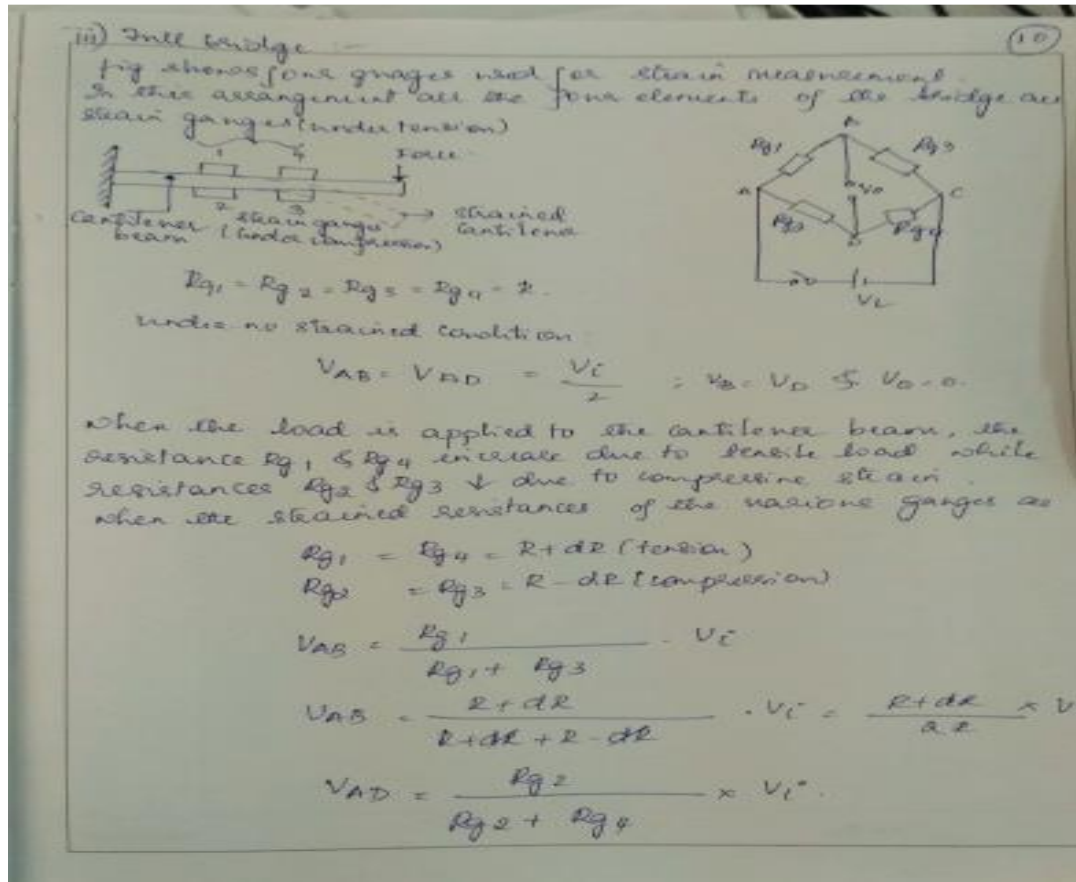 iii) Full bridge
10
fig shows four guages used for strain measurement.
In this arrangement all the four elements of the bridge are
strain gauges (under tension)
1 4 Force
2 3
strained
cantilever
cantilever
beam
strain gauges
(under compression)
Rg1 Rg3
A C
Rg2 Rg4
D
Vi
Rg1 = Rg2 = Rg3 = Rg4 = R.
under no strained condition
VAB = VAD = Vi/2 ; VB = VD & V0 = 0.
when the load is applied to the cantilever beam, the
resistance Rg1 & Rg4 increase due to tensile load while
resistances Rg2 & Rg3 ↓ due to compressive strain.
when the strained resistances of the various gauges are
Rg1 = Rg4 = R + dR (tension)
Rg2 = Rg3 = R - dR (compression)
VAB = Rg1 / Rg1 + Rg3 . Vi
VAB = R + dR / R + dR + R - dR . Vi = R + dR / 2R × V
VAD = Rg2 / Rg2 + Rg4 × Vi.